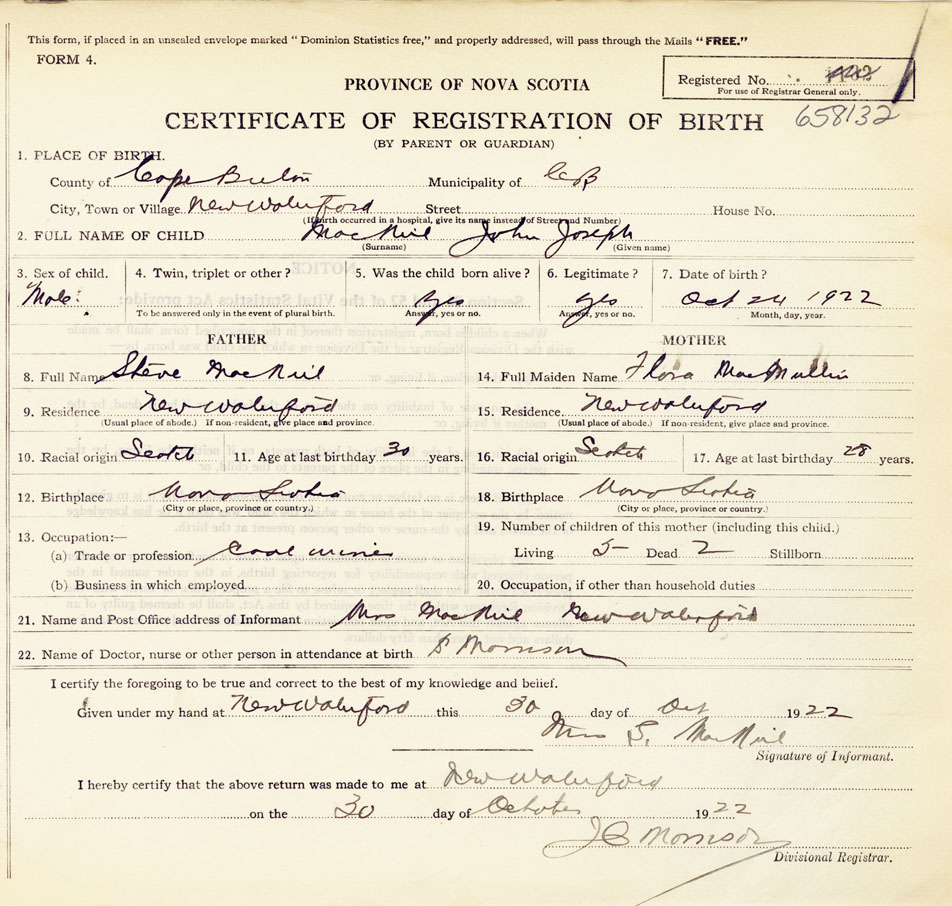 This form, if placed in an unsealed envelope marked "Dominion Statistics free," and properly addressed, will pass through the Mails "FREE."
FORM 4.
Registered No.
For use of Registrar General only.
PROVINCE OF NOVA SCOTIA
658132
CERTIFICATE OF REGISTRATION OF BIRTH
(BY PARENT OR GUARDIAN)
1. PLACE OF BIRTH.
County of Cape Breton Municipality of CB
City, Town or Village New Waterford Street House No.
(If birth occurred in a hospital, give its name instead of Street and Number)
2. FULL NAME OF CHILD MacNeil John Joseph
(Surname) (Given name)
3. Sex of child. 4. Twin, triplet or other? 5. Was the child born alive? 6. Legitimate? 7. Date of birth?
Male. yes yes Oct 24 1922
To be answered only in the event of plural birth. Answer, yes or no. Answer, yes or no. Month, day, year.
FATHER MOTHER
8. Full Name Steve MacNeil 14. Full Maiden Name Flora MacMullin
9. Residence New Waterford 15. Residence New Waterford
(Usual place of abode.) If non-resident, give place and province. (Usual place of abode.) If non-resident, give place and province.
10. Racial origin Scotch 11. Age at last birthday 30 years. 16. Racial origin Scotch 17. Age at last birthday 28 years.
12. Birthplace Nova Scotia 18. Birthplace Nova Scotia
(City or place, province or country.) (City or place, province or country.)
13. Occupation:— 19. Number of children of this mother (including this child.)
(a) Trade or profession coal miner Living 5 Dead 2 Stillborn
(b) Business in which employed 20. Occupation, if other than household duties
21. Name and Post Office address of Informant Mrs MacNeil New Waterford
22. Name of Doctor, nurse or other person in attendance at birth S Morrison
I certify the foregoing to be true and correct to the best of my knowledge and belief.
Given under my hand at New Waterford this 30 day of Oct 1922
Mrs S. MacNeil
Signature of Informant.
I hereby certify that the above return was made to me at New Waterford
on the 30 day of October 1922
J C Morrison
Divisional Registrar.